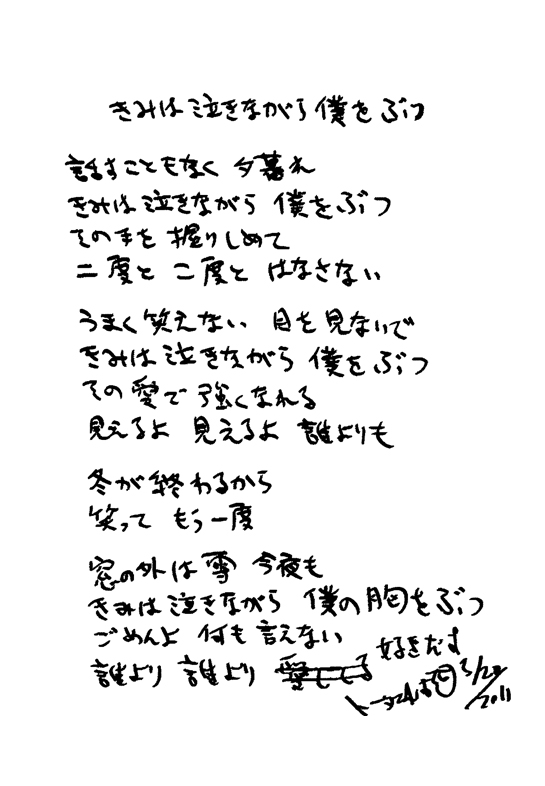 きみは泣きながら僕をぶつ
話すこともなく 夕暮れ
きみは泣きながら 僕をぶつ
その手を 握りしめて
二度と 二度と はなさない
うまく笑えない 目を見ないで
きみは泣きながら 僕をぶつ
その愛で 強くなれる
見えるよ 見えるよ 誰よりも
冬が終わるから
笑って もう一度
窓の外は雪 今夜も
きみは泣きながら 僕の胸をぶつ
ごめんよ 何も言えない
誰より 誰より 愛してる 好きだす
2011